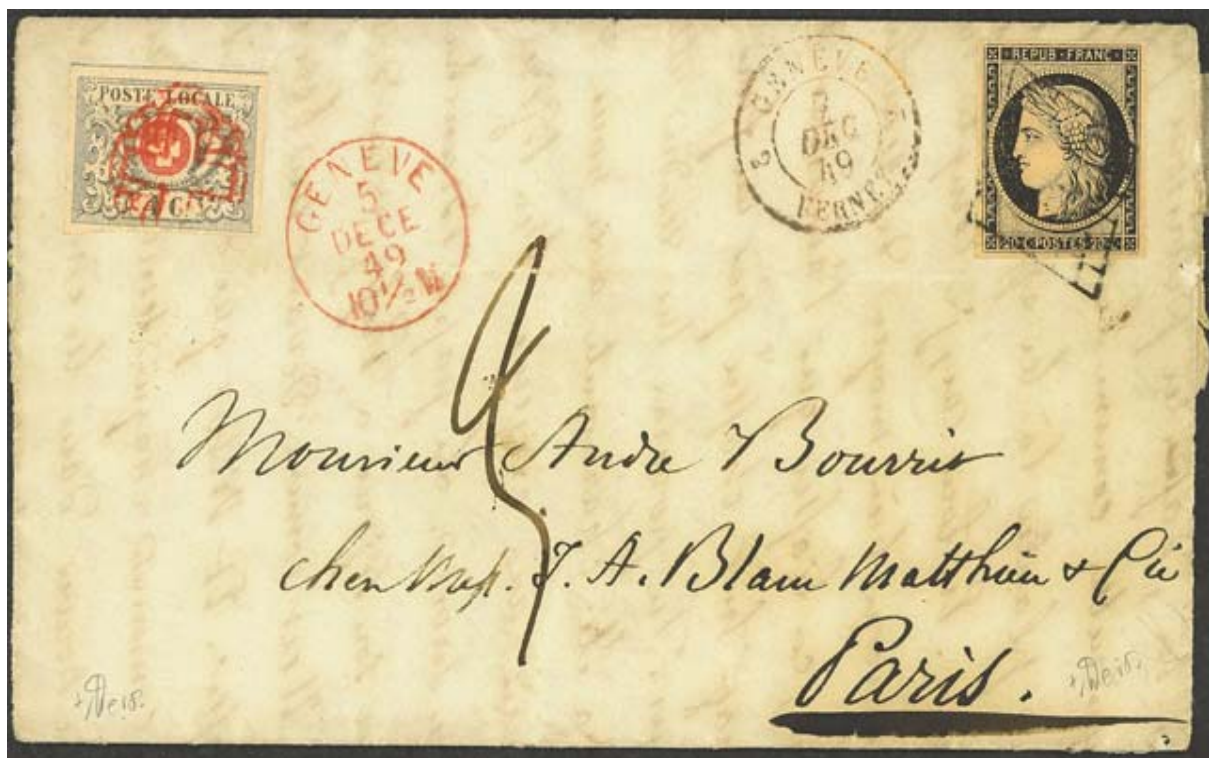 POSTE LOCALE
4 C.
GENEVE
5
DECE
49
10½ M
2 GENEVE 2
DEC
49
FERNEY
REPUB·FRANC
20·C·POSTES·20·C
Monsieur Andre Bourrit
chez Mess. J. A. Blanc Matthieu & Cie
Paris.